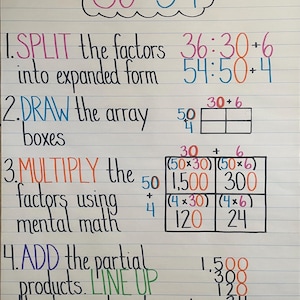 1. SPLIT the factors 36:30+6
into expanded form 54:50+4
2. DRAW the array
boxes
30 + 6
50
4
3. MULTIPLY the
factors using
mental math
30 + 6
50
+
4
(50×30) (50×6)
1,500 300
(4×30) (4×6)
120 24
4. ADD the partial
products. LINE UP
1,500
300
120